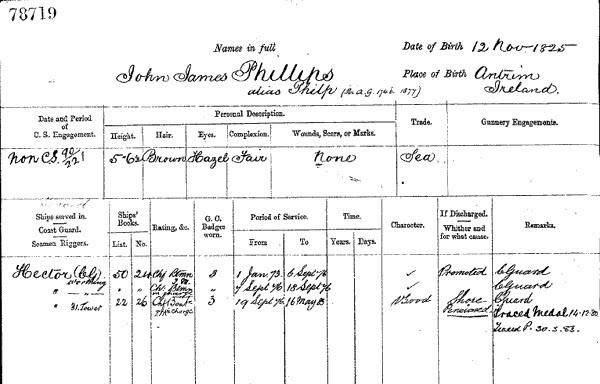 78719
Names in full
Date of Birth 12 Nov 1825
John James Phillips
alias Philp
Place of Birth Antrim
Ireland.
Date and Period of C. S. Engagement.
Personal Description.
Trade.
Gunnery Engagements.
Height. Hair. Eyes. Complexion. Wounds, Scars, or Marks.
Non C.S. 5-6½ Brown Hazel Fair None Sea
Ships served in. Coast Guard. Seamen Riggers.
Ships' Books.
Rating, &c.
G. C. Badges worn.
Period of Service.
Time.
Character.
If Discharged. Whither and for what cause.
Remarks.
List. No. From To Years. Days.
Hector (CG) 50 24 3 1 Jan 73 6 Sept 76 ✓ Promoted CGuard
Worthing
" " " 7 Sept 76 18 Sept 76 ✓ CGuard
" 31. Tower 22 26 3 19 Sept 76 16 May 83 VGood Shore Pensioned CGuard
Traced Medal 14.12.80
Traced P. 30.5.83.